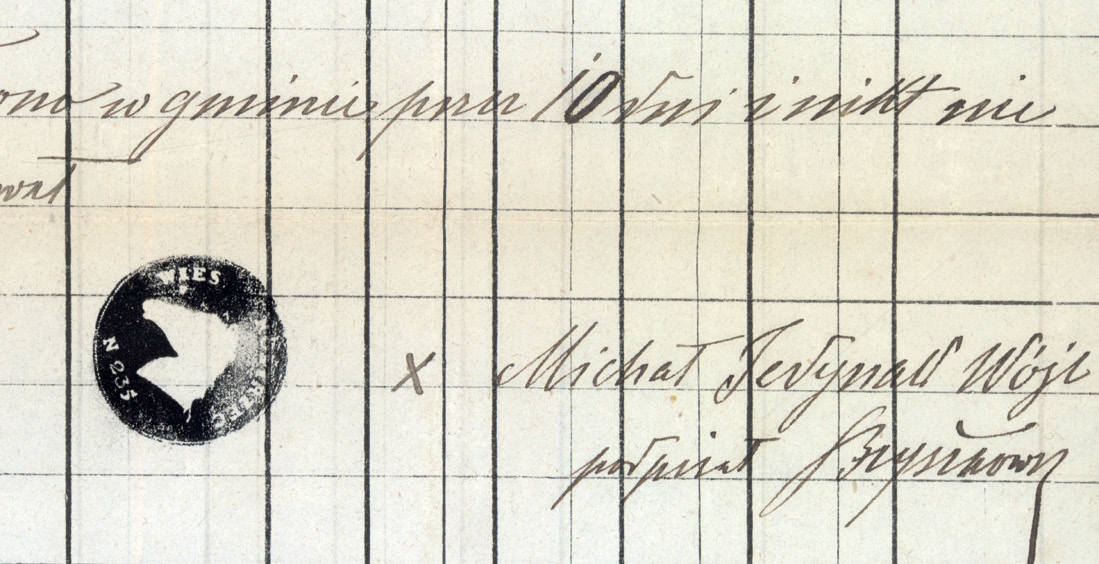 ono w gminie przez 10 dni i nikt nie
wał
WIEŚ
N 235
X Michał Jedynak Wójt
podpisał